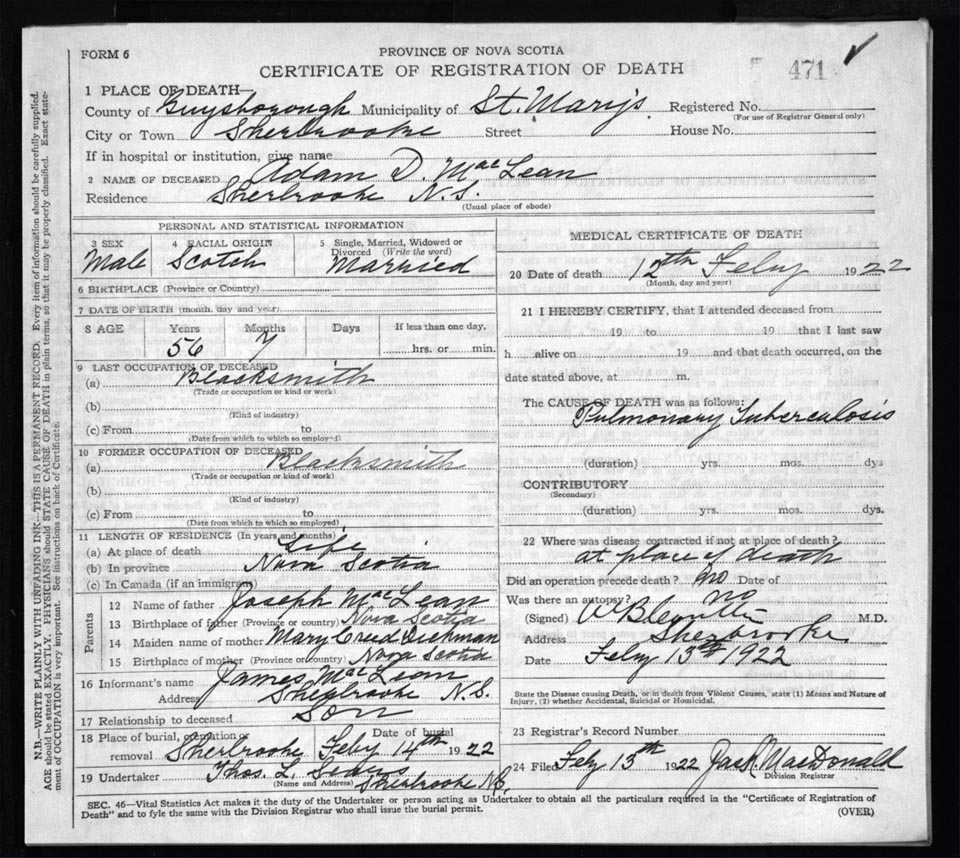 FORM 6
PROVINCE OF NOVA SCOTIA
CERTIFICATE OF REGISTRATION OF DEATH
471
1 PLACE OF DEATH—
County of Guysborough Municipality of St. Mary's Registered No.
(For use of Registrar General only)
City or Town Sherbrooke Street House No.
If in hospital or institution, give name
2 NAME OF DECEASED Adam D. MacLean
Residence Sherbrooke N.S.
(Usual place of abode)
PERSONAL AND STATISTICAL INFORMATION
3 SEX Male
4 RACIAL ORIGIN Scotch
5 Single, Married, Widowed or Divorced (Write the word) Married
6 BIRTHPLACE (Province or Country)
7 DATE OF BIRTH (month, day and year)
8 AGE Years Months Days If less than one day,
56 7 hrs. or min.
9 LAST OCCUPATION OF DECEASED
(a) Blacksmith
(Trade or occupation or kind of work)
(b)
(Kind of industry)
(c) From to
(Date from which to which so employed)
10 FORMER OCCUPATION OF DECEASED
(a) Blacksmith
(Trade or occupation or kind of work)
(b)
(Kind of industry)
(c) From to
(Date from which to which so employed)
11 LENGTH OF RESIDENCE (In years and months)
(a) At place of death Life
(b) In province Nova Scotia
(c) In Canada (if an immigrant)
Parents
12 Name of father Joseph MacLean
13 Birthplace of father (Province or country) Nova Scotia
14 Maiden name of mother Mary Creed Dickman
15 Birthplace of mother (Province or country) Nova Scotia
16 Informant's name James MacLean
Address Sherbrooke N.S.
17 Relationship to deceased Son
18 Place of burial, cremation or removal Sherbrooke Date of burial Feby 14th 1922
19 Undertaker Thos. L. Sherbrooke N.S.
(Name and Address)
MEDICAL CERTIFICATE OF DEATH
20 Date of death 12th Feby 1922
(Month, day and year)
21 I HEREBY CERTIFY, that I attended deceased from
19 to 19 that I last saw
h alive on 19 and that death occurred, on the
date stated above, at m.
The CAUSE OF DEATH was as follows:
Pulmonary Tuberculosis
(duration) yrs. mos. dys
CONTRIBUTORY
(Secondary)
(duration) yrs. mos. dys.
22 Where was disease contracted if not at place of death?
at place of death
Did an operation precede death? no Date of
Was there an autopsy? no
(Signed) M.D.
Address Sherbrooke
Date Feby 13th 1922
State the Disease causing Death, or in death from Violent Causes, state (1) Means and Nature of
Injury, (2) whether Accidental, Suicidal or Homicidal.
23 Registrar's Record Number
24 Filed Feby 13th 1922 MacDonald
Division Registrar
SEC. 46—Vital Statistics Act makes it the duty of the Undertaker or person acting as Undertaker to obtain all the particulars required in the "Certificate of Registration of
Death" and to fyle the same with the Division Registrar who shall issue the burial permit.
(OVER)
N.B.—WRITE PLAINLY WITH UNFADING INK—THIS IS A PERMANENT RECORD. Every item of information should be carefully supplied.
AGE should be stated EXACTLY. PHYSICIANS should STATE CAUSE OF DEATH in plain terms, so that it may be properly classified. Exact state-
ment of OCCUPATION is very important. See instructions on back of Certificate.